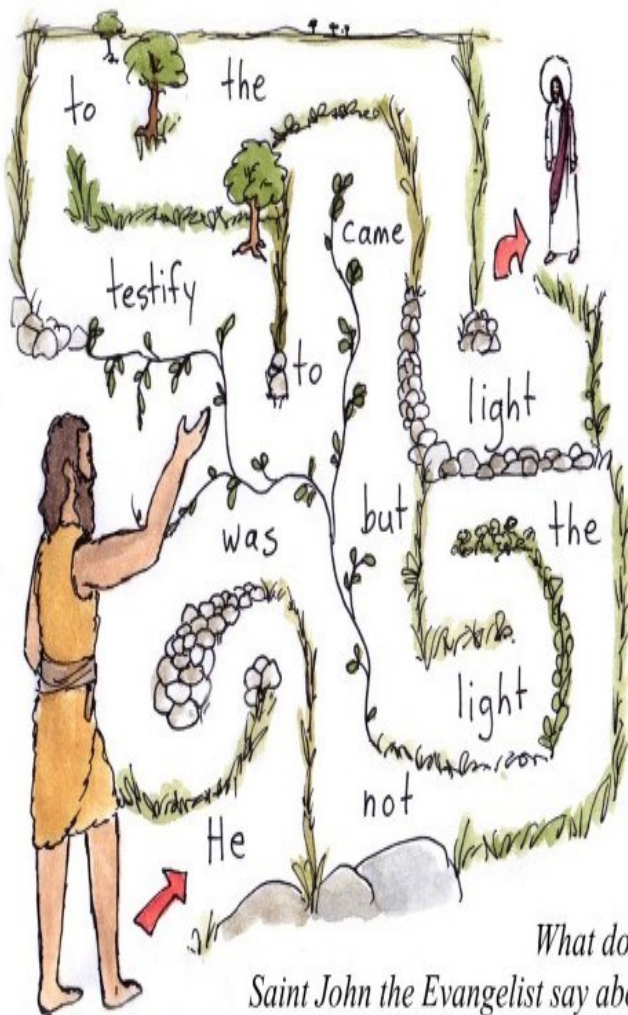 to the
came
testify
to
light
was but the
light
not
He
What do
Saint John the Evangelist say abo